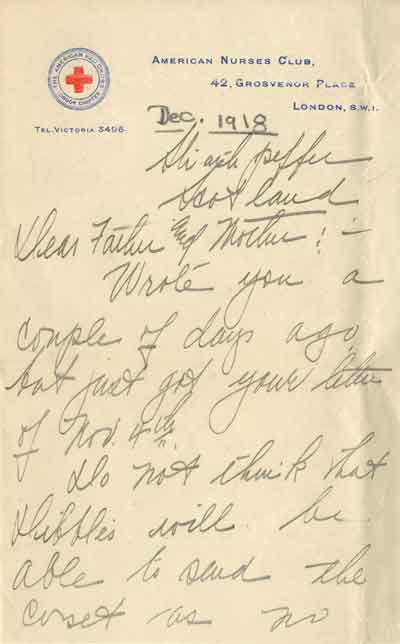 THE AMERICAN RED CROSS
LONDON CHAPTER
AMERICAN NURSES CLUB,
42, GROSVENOR PLACE
LONDON, S.W.1.
TEL. VICTORIA 3496.
Dec. 1918
Scotland
Dear Father and Mother: -
Wrote you a
couple of days ago
but just got your letter
of Nov. 4th.
Do not think that
will be
able to send the
corset as no